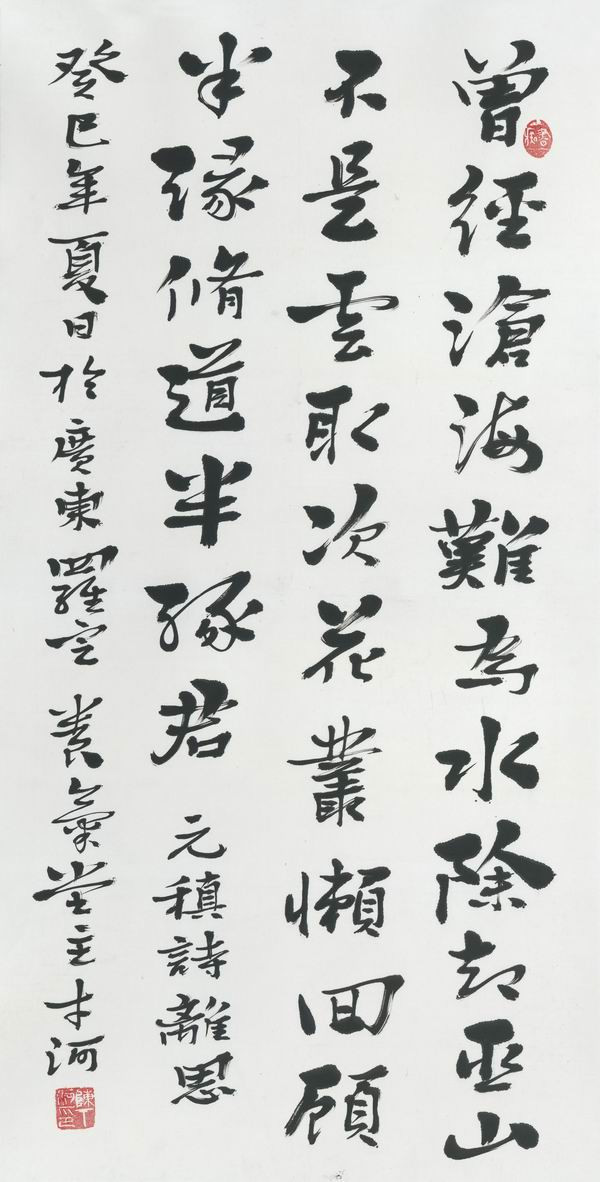 曾經滄海難為水除却巫山
不是雲取次花叢懶回顧
半緣脩道半緣君 元稹詩離思
癸巳年夏日於廣東羅定養氣堂主才河